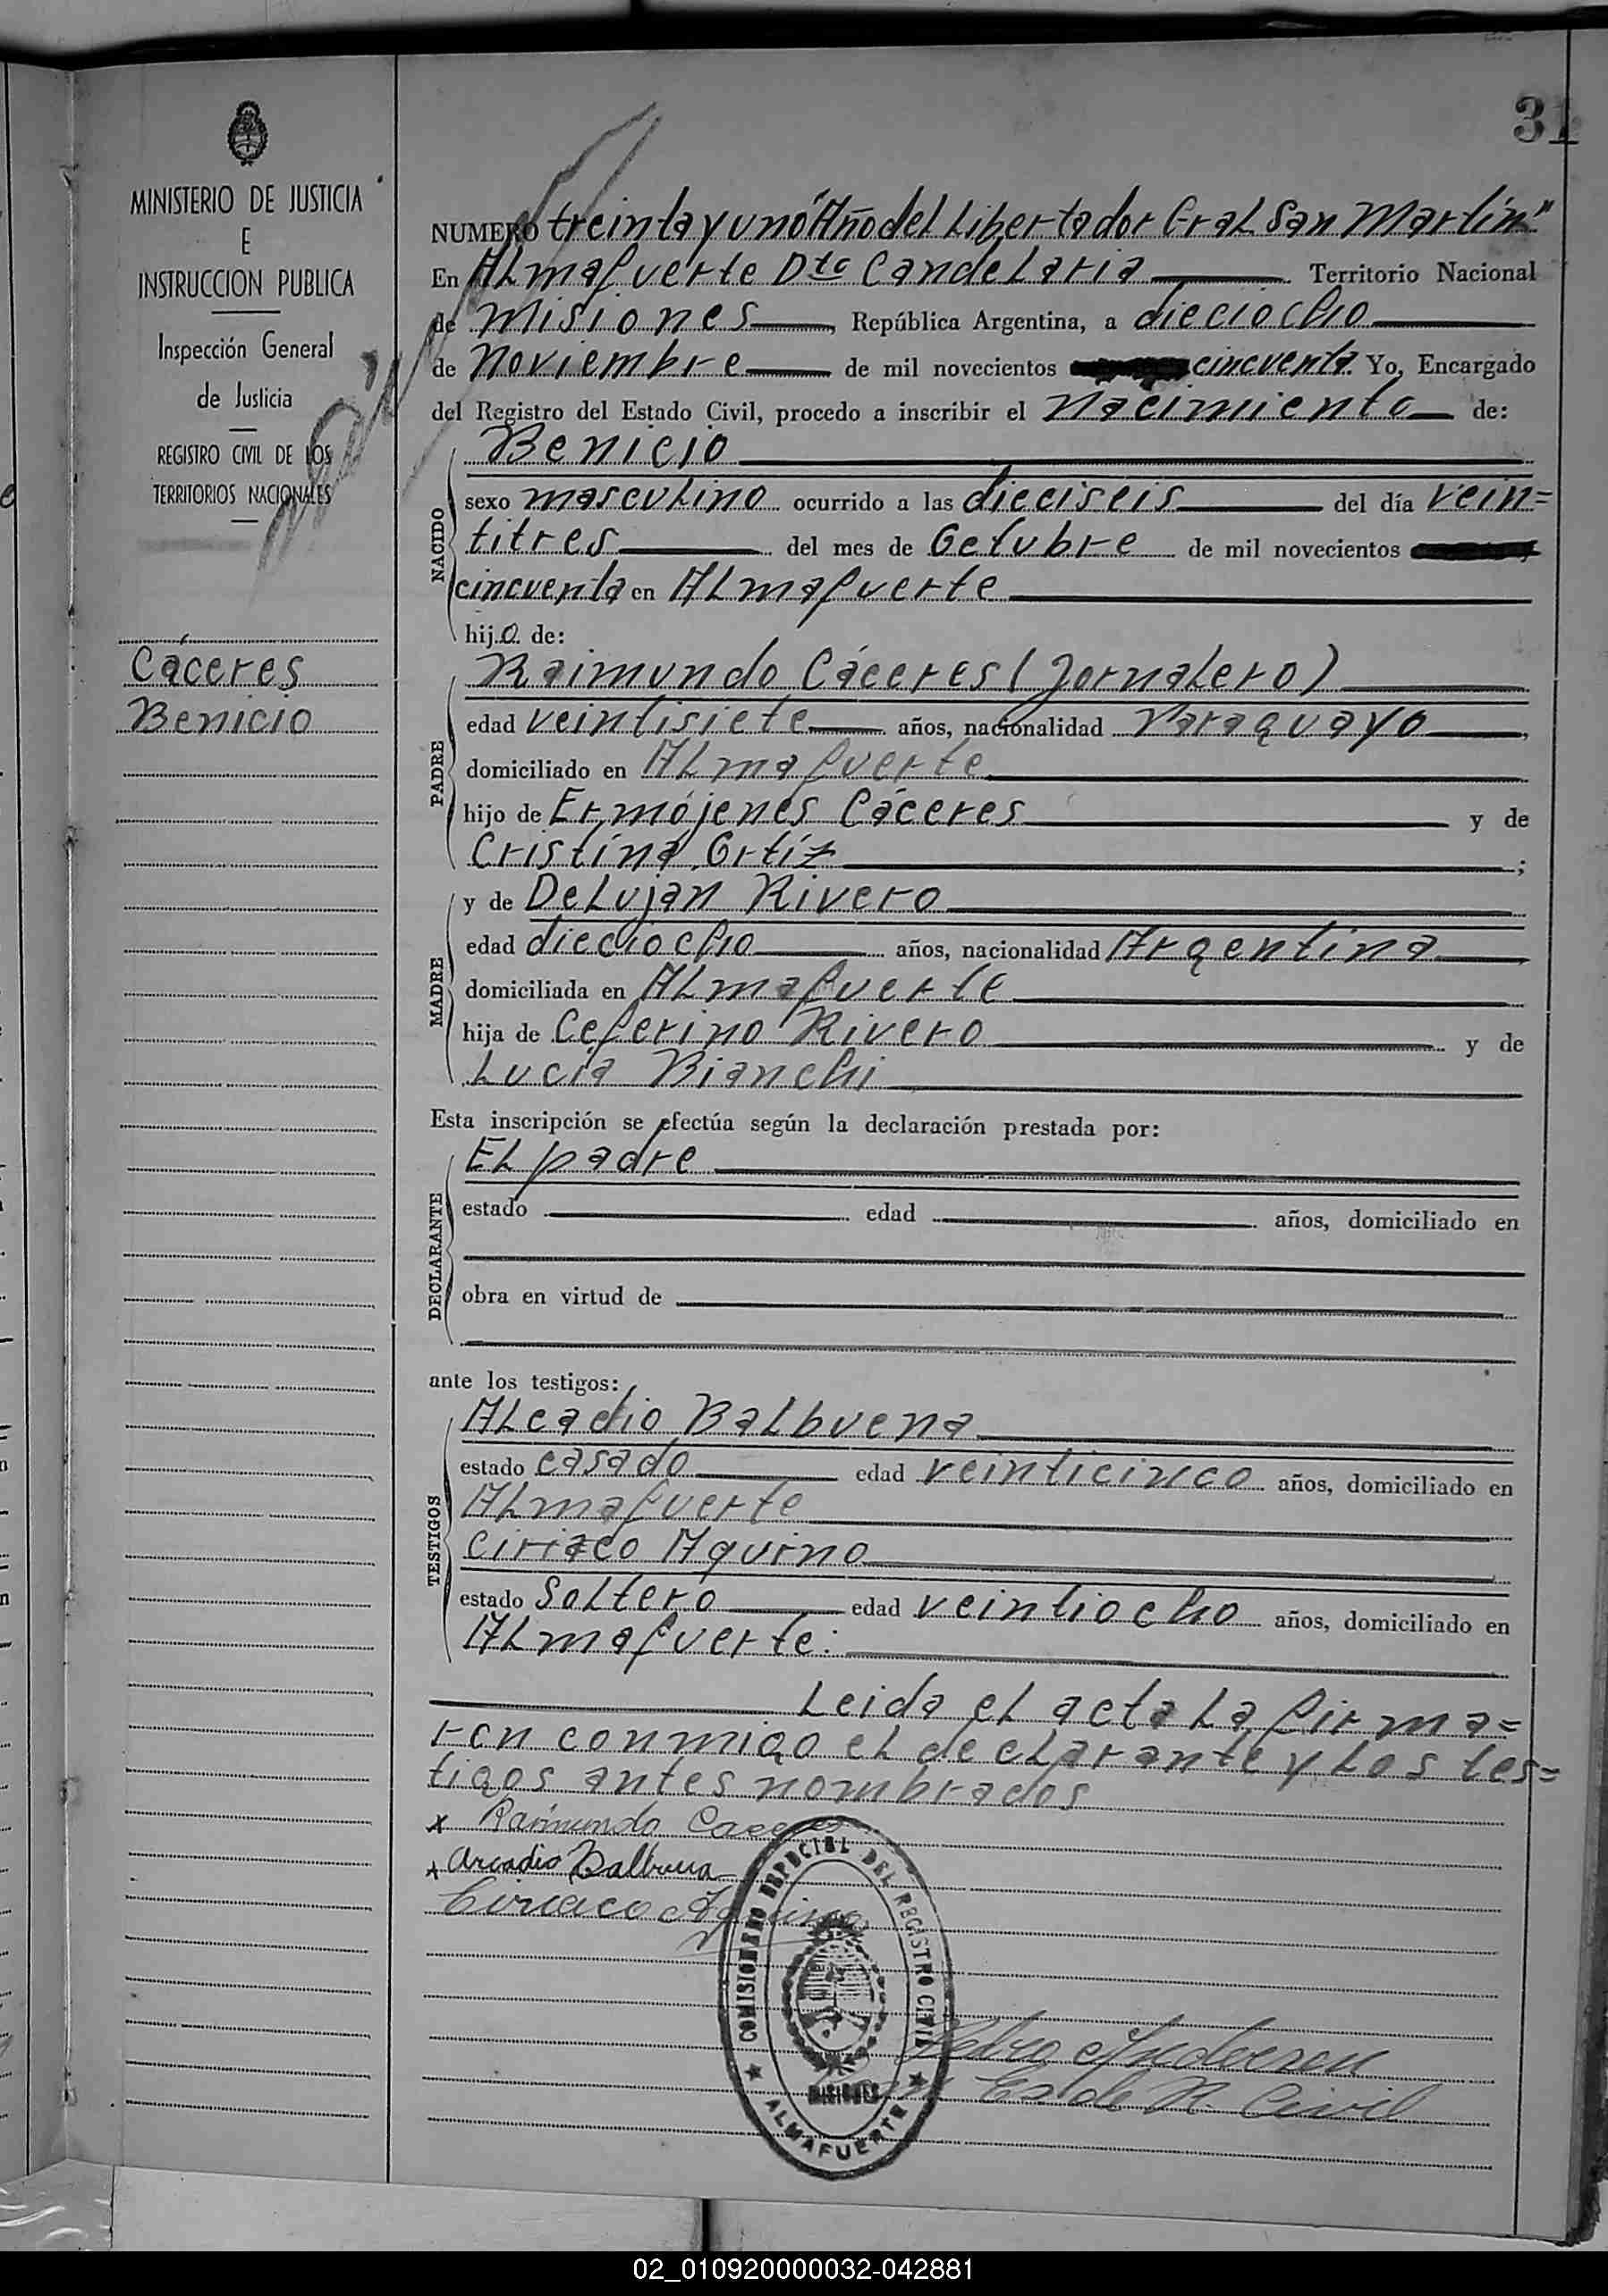 31
MINISTERIO DE JUSTICIA
E
INSTRUCCION PUBLICA
Inspección General
de Justicia
REGISTRO CIVIL DE LOS
TERRITORIOS NACIONALES
Cáceres
Benicio
NUMERO treinta y uno "Año del Libertador Gral San Martín"
En Almafuerte Dto Candelaria Territorio Nacional
de Misiones, República Argentina, a dieciocho
de Noviembre de mil novecientos cincuenta Yo, Encargado
del Registro del Estado Civil, procedo a inscribir el Nacimiento de:
NACIDO
Benicio
sexo masculino ocurrido a las dieciseis del día vein=
titres del mes de Octubre de mil novecientos
cincuenta en Almafuerte
hijo de:
PADRE
Raimundo Cáceres (Jornalero)
edad veintisiete años, nacionalidad Paraguayo,
domiciliado en Almafuerte
hijo de Ermójenes Cáceres y de
Cristina Ortiz;
MADRE
y de DeLujan Rivero
edad dieciocho años, nacionalidad Argentina
domiciliada en Almafuerte
hija de Ceferino Rivero y de
Lucia Bianchi
Esta inscripción se efectúa según la declaración prestada por:
DECLARANTE
El padre
estado edad años, domiciliado en
obra en virtud de
ante los testigos:
TESTIGOS
Alcadio Balbuena
estado casado edad veinticinco años, domiciliado en
Almafuerte
Ciriaco Aquino
estado Soltero edad veintiocho años, domiciliado en
Almafuerte.
Leida el acta la firma=
ron conmigo el declarante y los tes=
tigos antes nombrados
x Raimundo Caceres
x Arcadio Balbuena
Ciriaco Aquino
COMISIONADO ESPECIAL DEL REGISTRO CIVIL
MISIONES
ALMAFUERTE
Pedro
Es de R. Civil
02_010920000032-042881